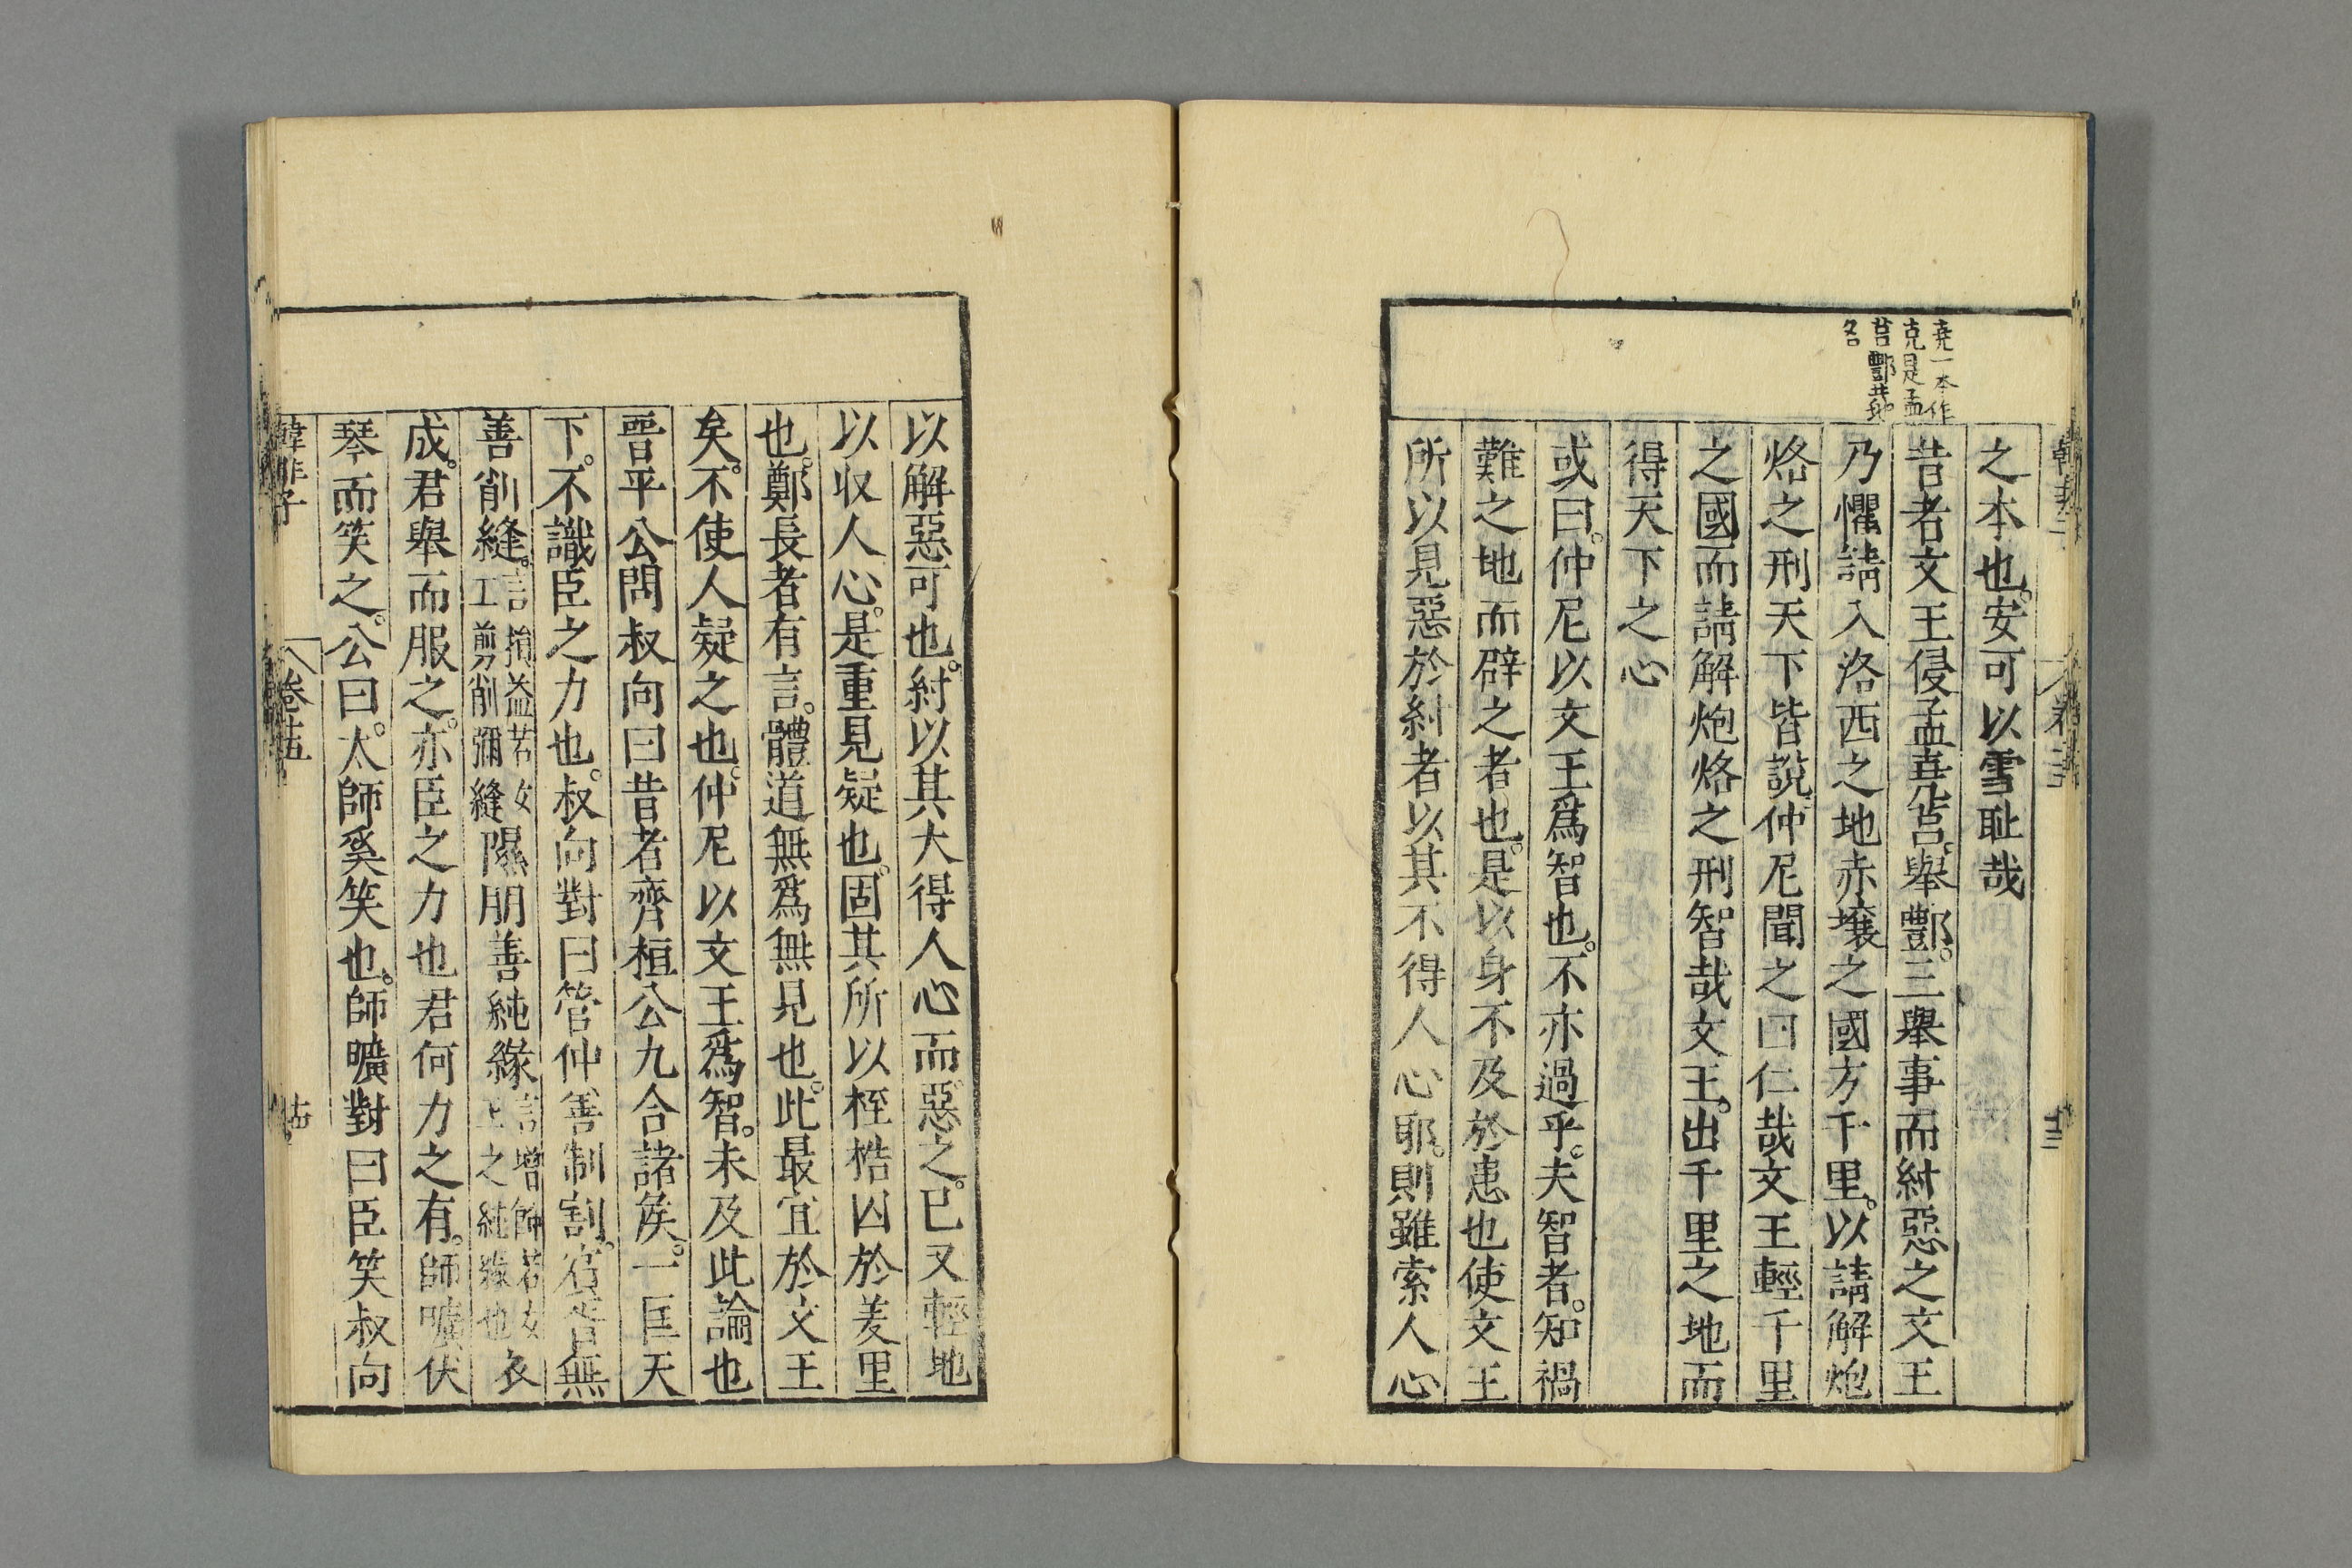 之本也。安可以雪恥哉
昔者文王侵孟克莒。舉酆。三舉事而紂惡之文王
乃懼請入洛西之地赤壤之國方千里。以請解炮
烙之刑天下皆說。仲尼聞之曰仁哉文王輕千里
之國而請解炮烙之刑智哉文王。出千里之地而
得天下之心
或曰。仲尼以文王爲智也。不亦過乎。夫智者。知禍
難之地而辟之者也。是以身不及於患也使文王
所以見惡於紂者以其不得人心耶。則雖索人心
堯一本作
克是孟
莒酆共地
名
以解惡可也。紂以其大得人心而惡之。已又輕地
以收人心。是重見疑也。固其所以桎梏囚於羑里
也。鄭長者有言。體道無爲無見也。此最宜於文王
矣。不使人疑之也。仲尼以文王爲智。未及此論也
晉平公問叔向曰昔者齊桓公九合諸侯。一匡天
下。不識臣之力也。叔向對曰管仲善制割。賓胥無
善削縫。言損益若女
工剪削彌縫
隰朋善純緣言增飾若女
工之純緣也
衣
成。君舉而服之。亦臣之力也君何力之有。師曠伏
琴而笑之。公曰。太師奚笑也。師曠對曰臣笑叔向
韓非子
卷十五
十四